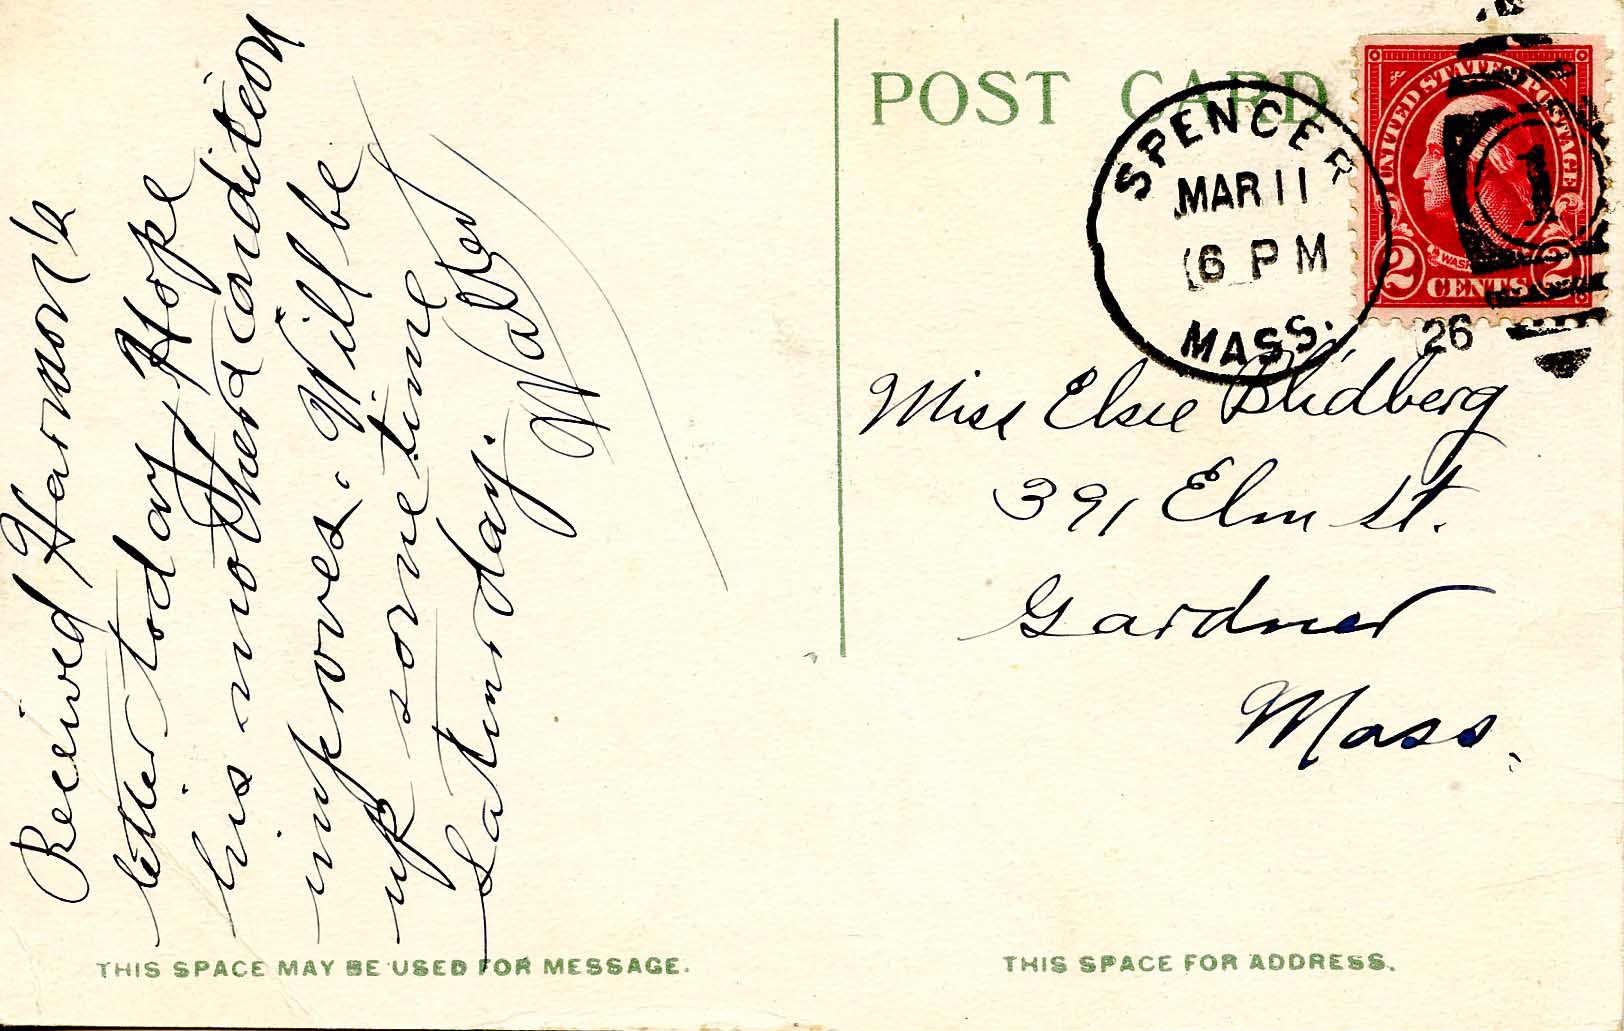 Received Harmon's
letter today, Hope
his mothers condition
improves. Will be
up some time
Saturday.
Walter
POST CARD
SPENCER
MAR 11
6 PM
MASS.
26
UNITED STATES POSTAGE
1
2 CENTS 2
Miss Elsie
391 Elm St.
Gardner
Mass.
THIS SPACE MAY BE USED FOR MESSAGE.
THIS SPACE FOR ADDRESS.